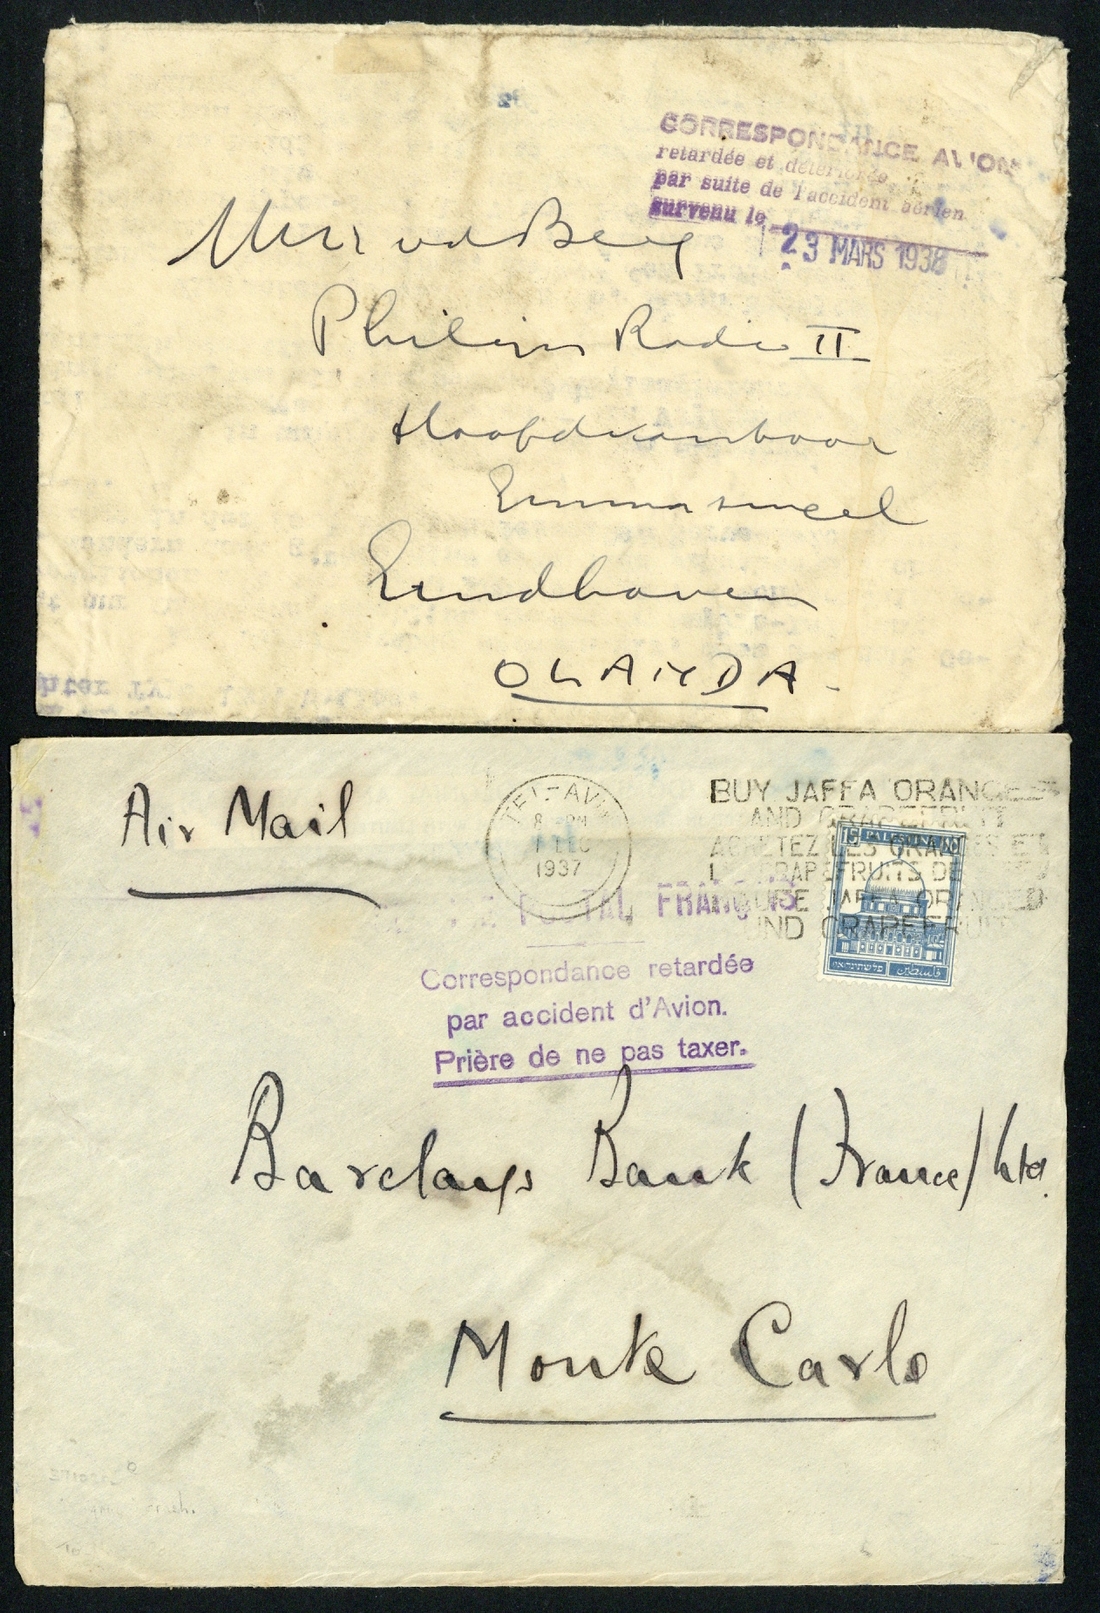 CORRESPONDANCE AVION
retardée et détériorée
par suite de l'accident aérien
survenu le
23 MARS 1938
vd Berg
Philips Radio II
Hoofdkantoor
Emmasingel
Eindhoven
OLANDA.
Air Mail
TEL-AVIV
8 - PM
1 DEC
1937
BUY JAFFA ORANGES
AND GRAPEFRUIT
ACHETEZ LES ORANGES ET
GRAPEFRUITS DE
JAFFA ORANGEN
UND GRAPEFRUIT
15 PALESTINE
POSTAL FRANÇAIS
Correspondance retardée
par accident d'Avion.
Prière de ne pas taxer.
Barclays Bank (France) Ltd.
Monte Carlo